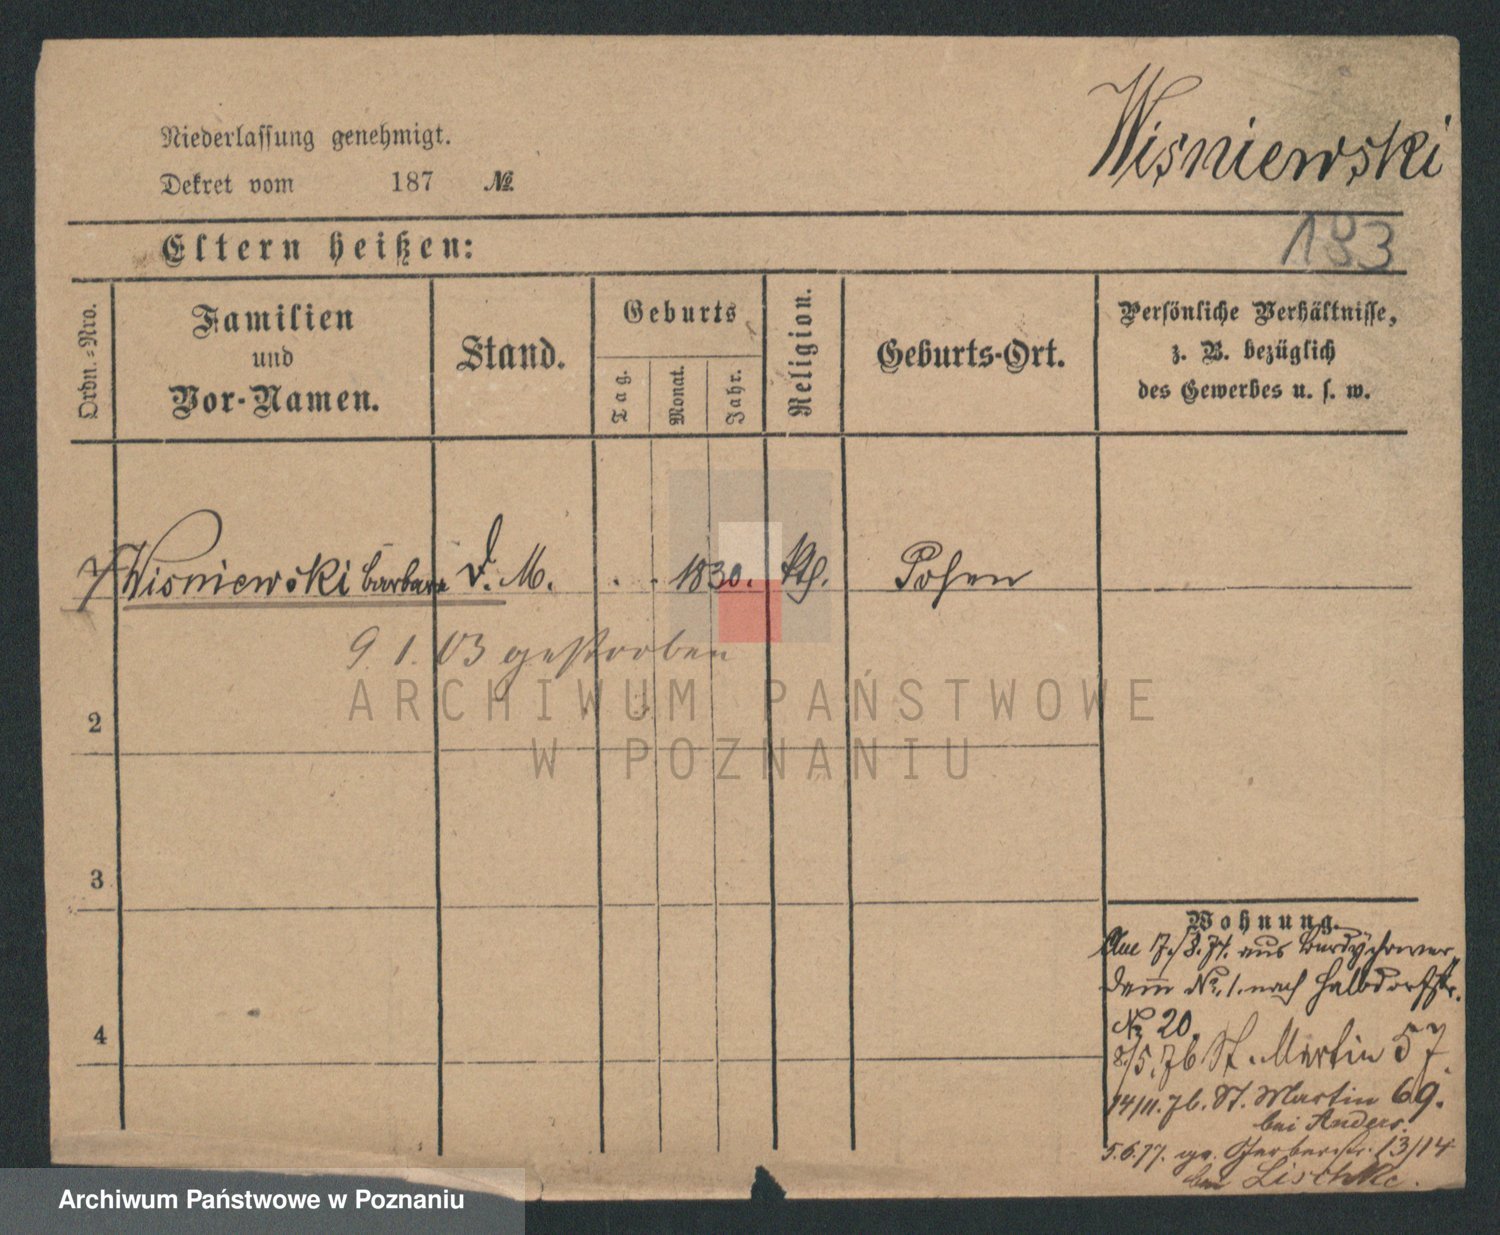 Wisniewski
Niederlassung genehmigt.
Dekret vom 187 №
183
Eltern heißen:
Ordn.=Nro.
Familien
und
Vor-Namen.
Stand.
Geburts
Tag.
Monat.
Jahr.
Religion.
Geburts-Ort.
Persönliche Verhältnisse,
z. B. bezüglich
des Gewerbes u. s. w.
Wisniewski Barbara D. M. . . 1830. kth. Posen
9. 1. 03 gestorben
ARCHIWUM PAŃSTWOWE
W POZNANIU
2
3
4
Wohnung.
aus
damm No. 1. nach Halbdorfstr.
No 20.
8/5. 76 St. Martin 57.
14/11. 76. St. Martin 69.
bei Anders.
5.6.77. Gerberstr. 13/14
bei Lischke.
Archiwum Państwowe w Poznaniu